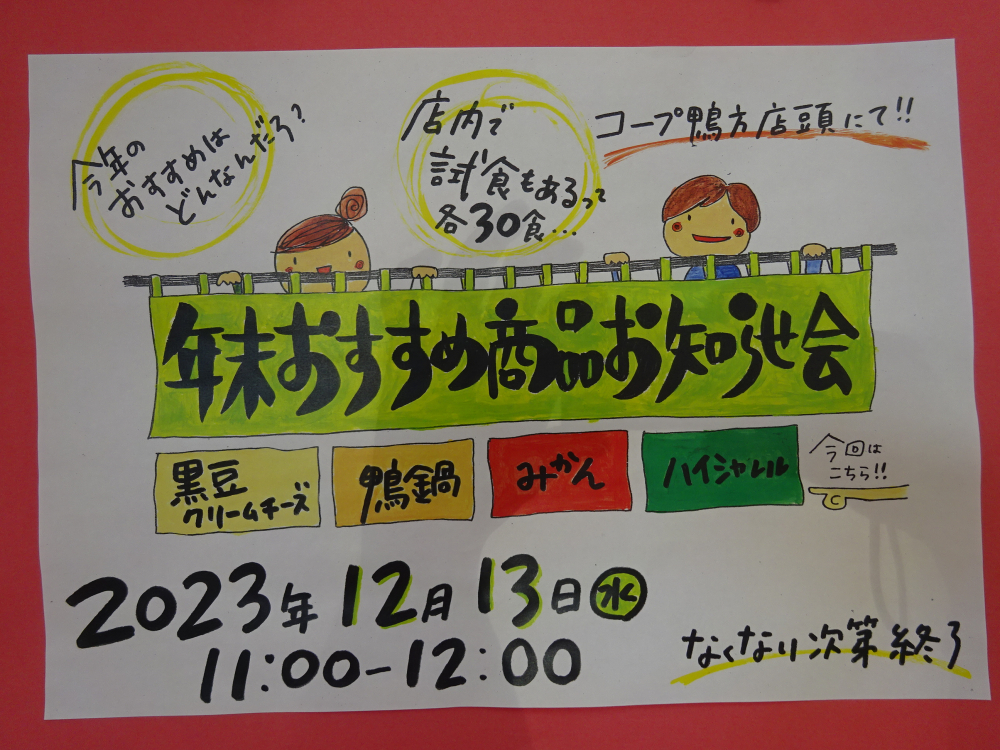 今年の
おすすめは
どんなんだろ?
店内で
試食もあるって
各30食…
コープ鴨方店頭にて!!
年末おすすめ商品お知らせ会
黒豆
クリームチーズ
鴨鍋
みかん
ハイシャルル
今回は
こちら!!
2023年12月13日水
11:00-12:00
なくなり次第終了